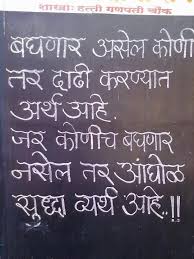 शाखाः हत्ती गणपती चौक
बघणार असेल कोणी
तर दाढी करण्यात
अर्थ आहे.
जर कोणीच बघणार
नसेल तर आंघोळ
सुद्धा व्यर्थ आहे..!!